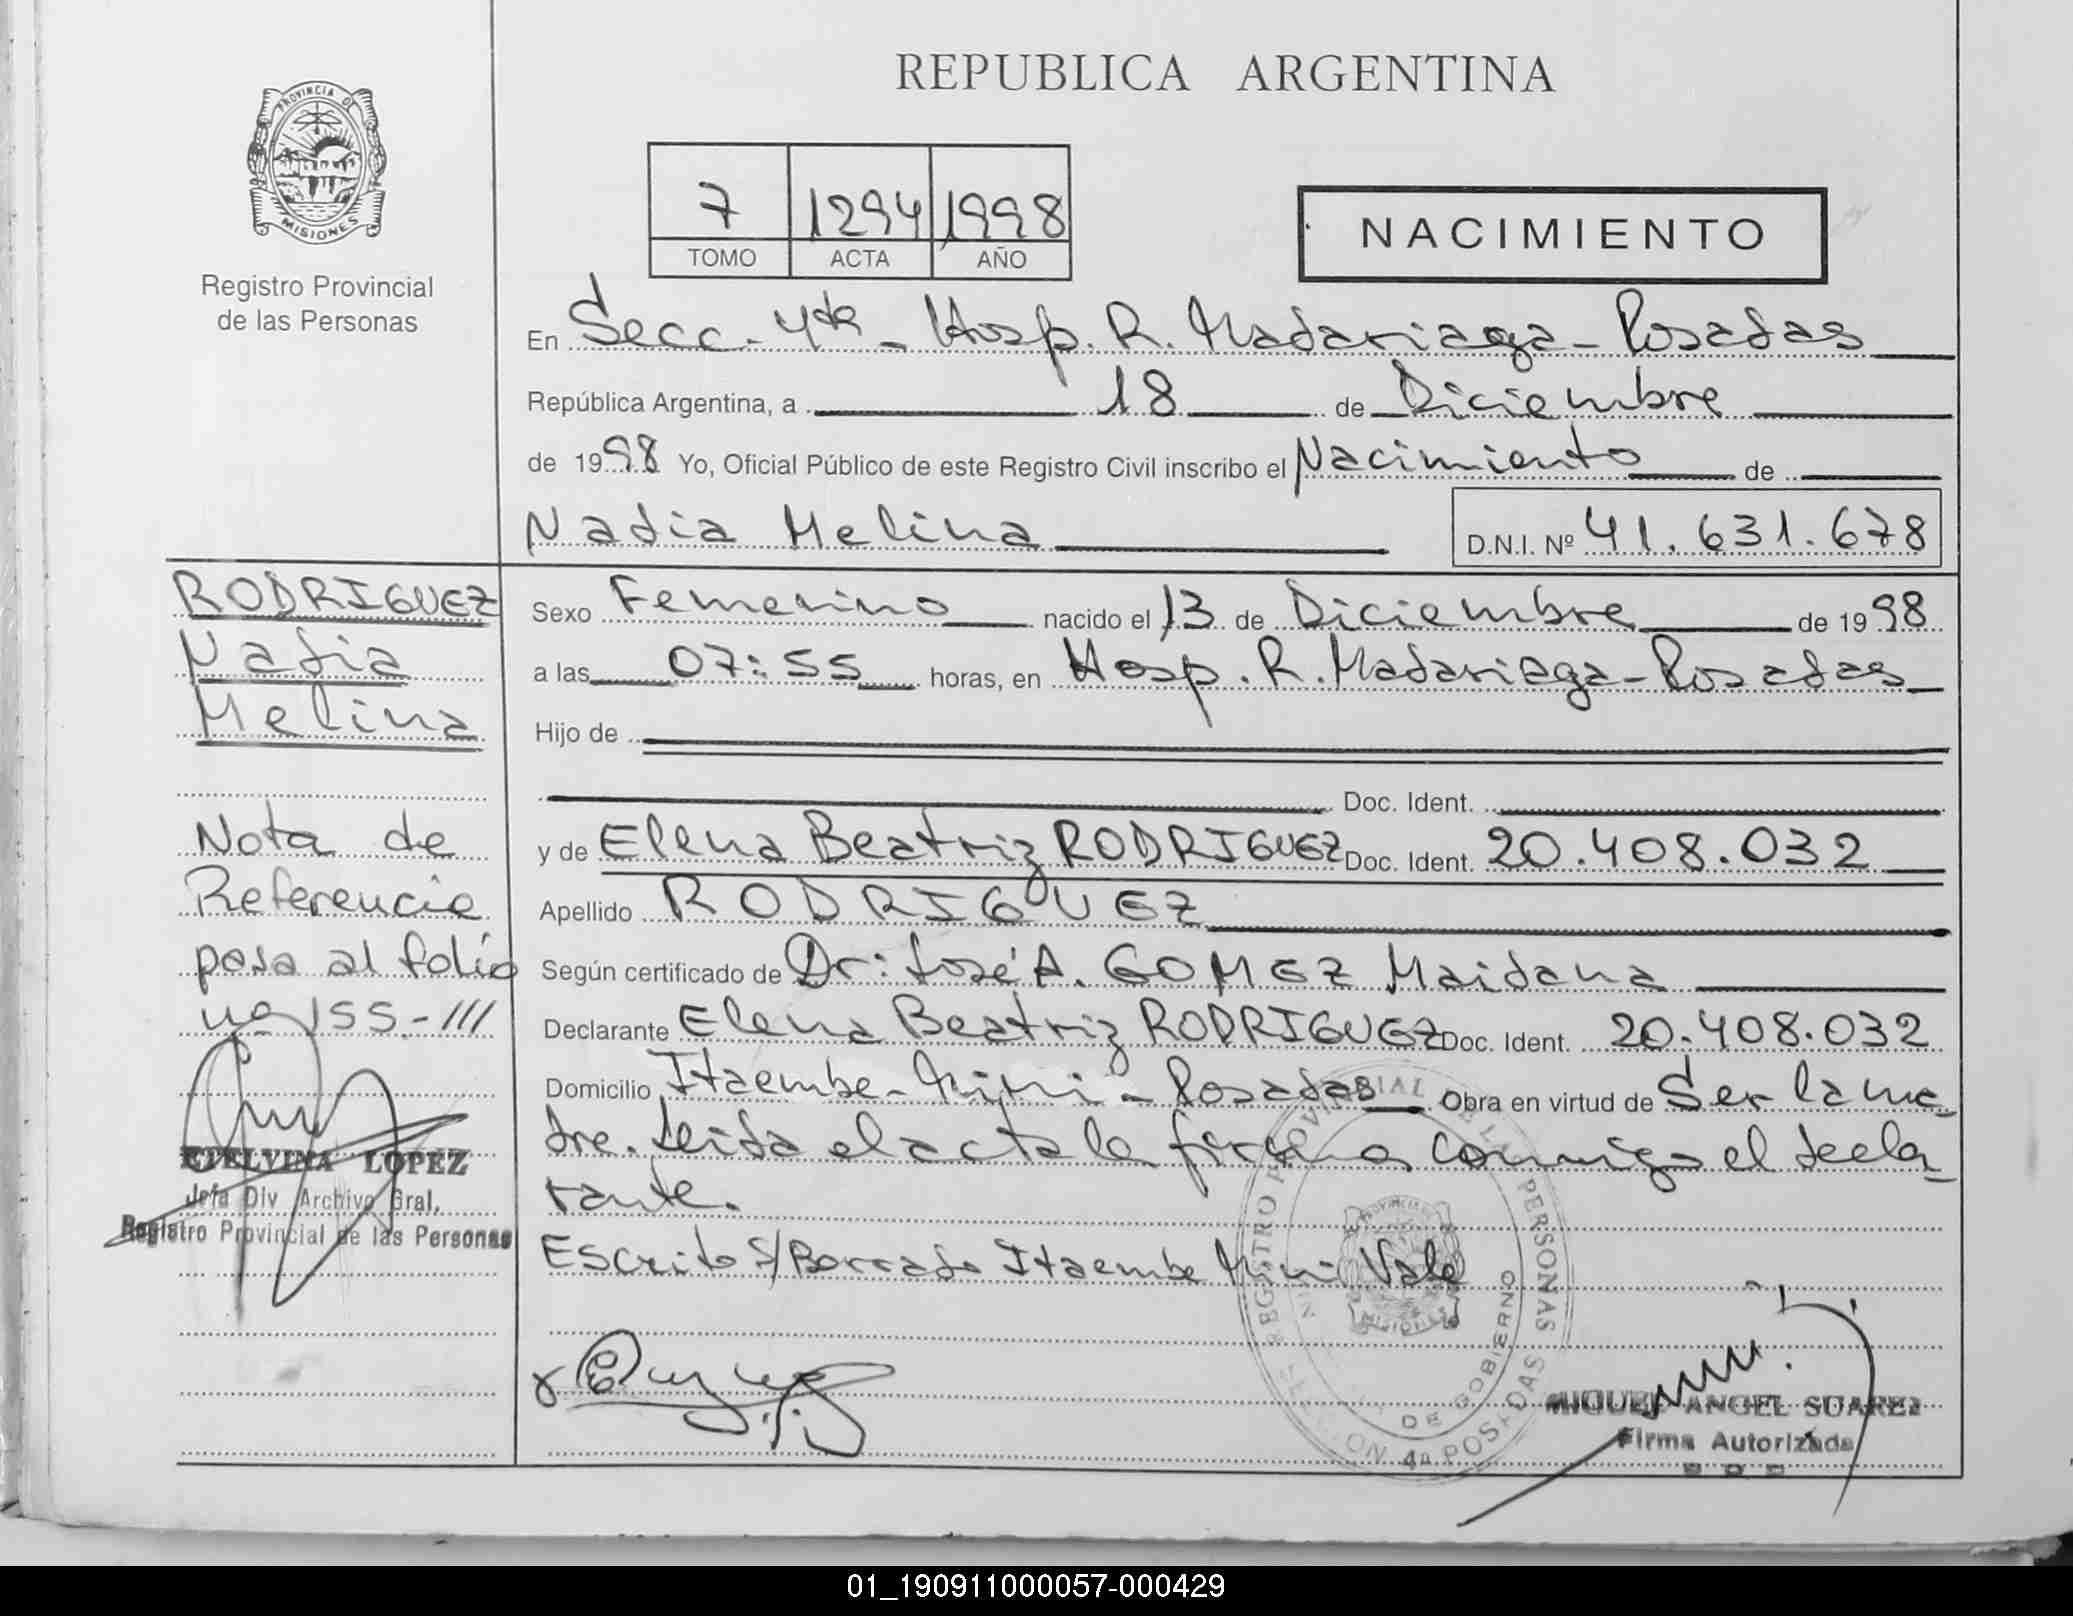 REPUBLICA ARGENTINA
PROVINCIA D
MISIONES
Registro Provincial
de las Personas
7 1294 1998
TOMO ACTA AÑO
NACIMIENTO
En Secc. 4ta - Hosp. R. Madariaga - Posadas
República Argentina, a 18 de Diciembre
de 1998 Yo, Oficial Público de este Registro Civil inscribo el Nacimiento de
Nadia Melina D.N.I. Nº 41.631.678
Sexo Femenino nacido el 13 de Diciembre de 1998
a las 07:55 horas, en Hosp. R. Madariaga - Posadas
Hijo de
Doc. Ident.
y de Elena Beatriz RODRIGUEZ Doc. Ident. 20.408.032
Apellido RODRIGUEZ
Según certificado de Dr: José A. GOMEZ Maidana
Declarante Elena Beatriz RODRIGUEZ Doc. Ident. 20.408.032
Domicilio Itaembe - Mini - Posadas Obra en virtud de Ser la ma-
dre. Leida el acta la firma conmigo el decla-
rante.
Escrito s/Borrado Itaembe Mini Vale
RODRIGUEZ
Nadia
Melina
Nota de
Referencia
pasa al folio
nº 155-III
ETELVINA LOPEZ
Jefa Div Archivo Gral.
Registro Provincial de las Personas
REGISTRO PROVINCIAL DE LAS PERSONAS
DE GOBIERNO
SECCION 4a POSADAS
MISIONES
MIGUEL ANGEL SUAREZ
Firma Autorizada
01_190911000057-000429